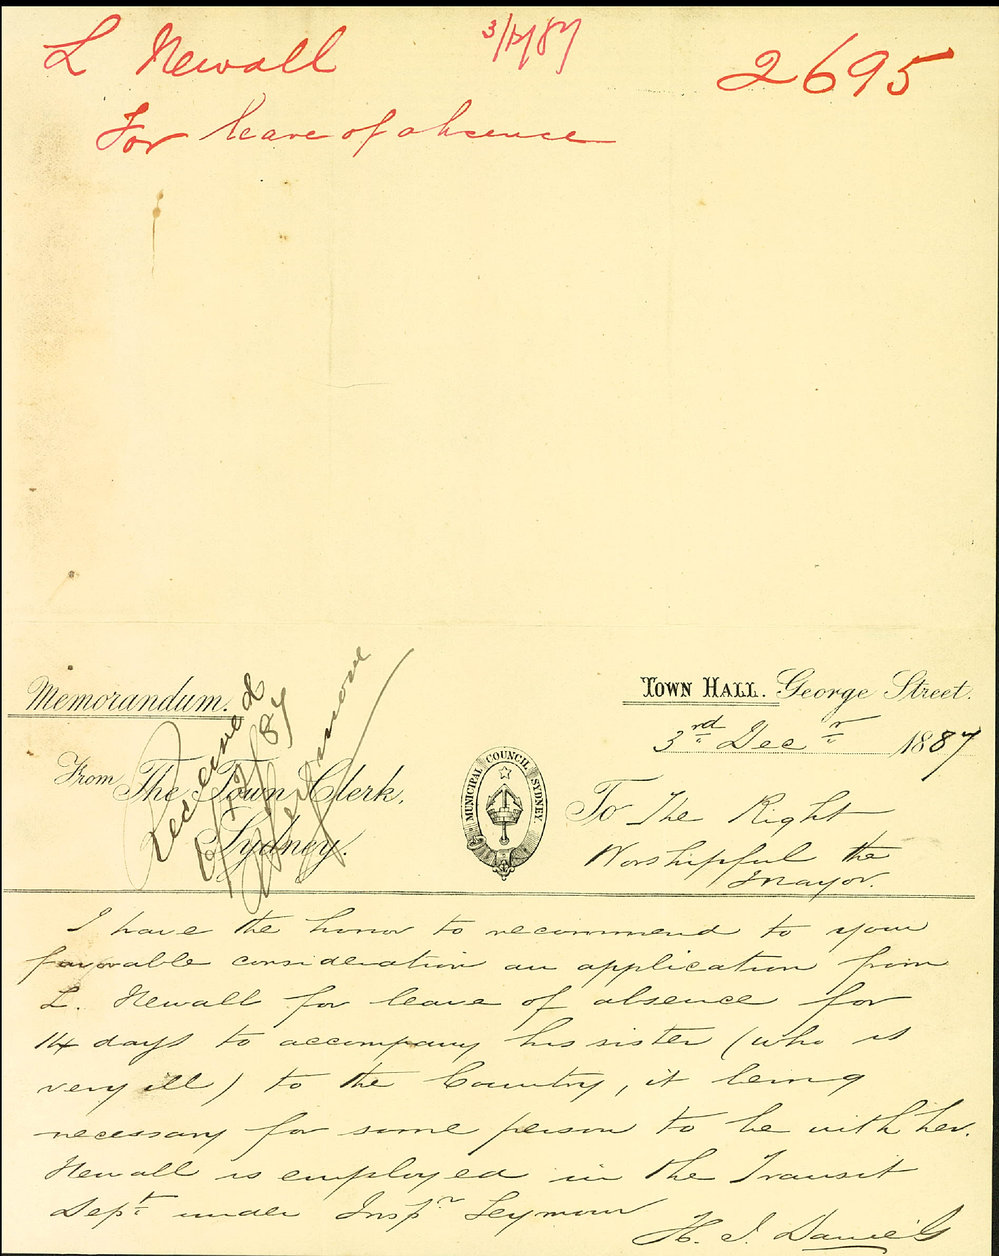 L Newall
3/12/87
2695
For leave of absence
Memorandum.
Town Hall. George Street.
3rd Decr 1887
From The Town Clerk,
Sydney.
Received
MUNICIPAL COUNCIL SYDNEY.
To The Right
Worshipful the
Mayor.
I have the honor to recommend to your
favorable consideration an application from
L. Newall for leave of absence for
14 days to accompany his sister (who is
very ill) to the Country, it being
necessary for some person to be with her.
Newall is employed in the Transit
Dept under Inspr Seymour
H. J. Daniels